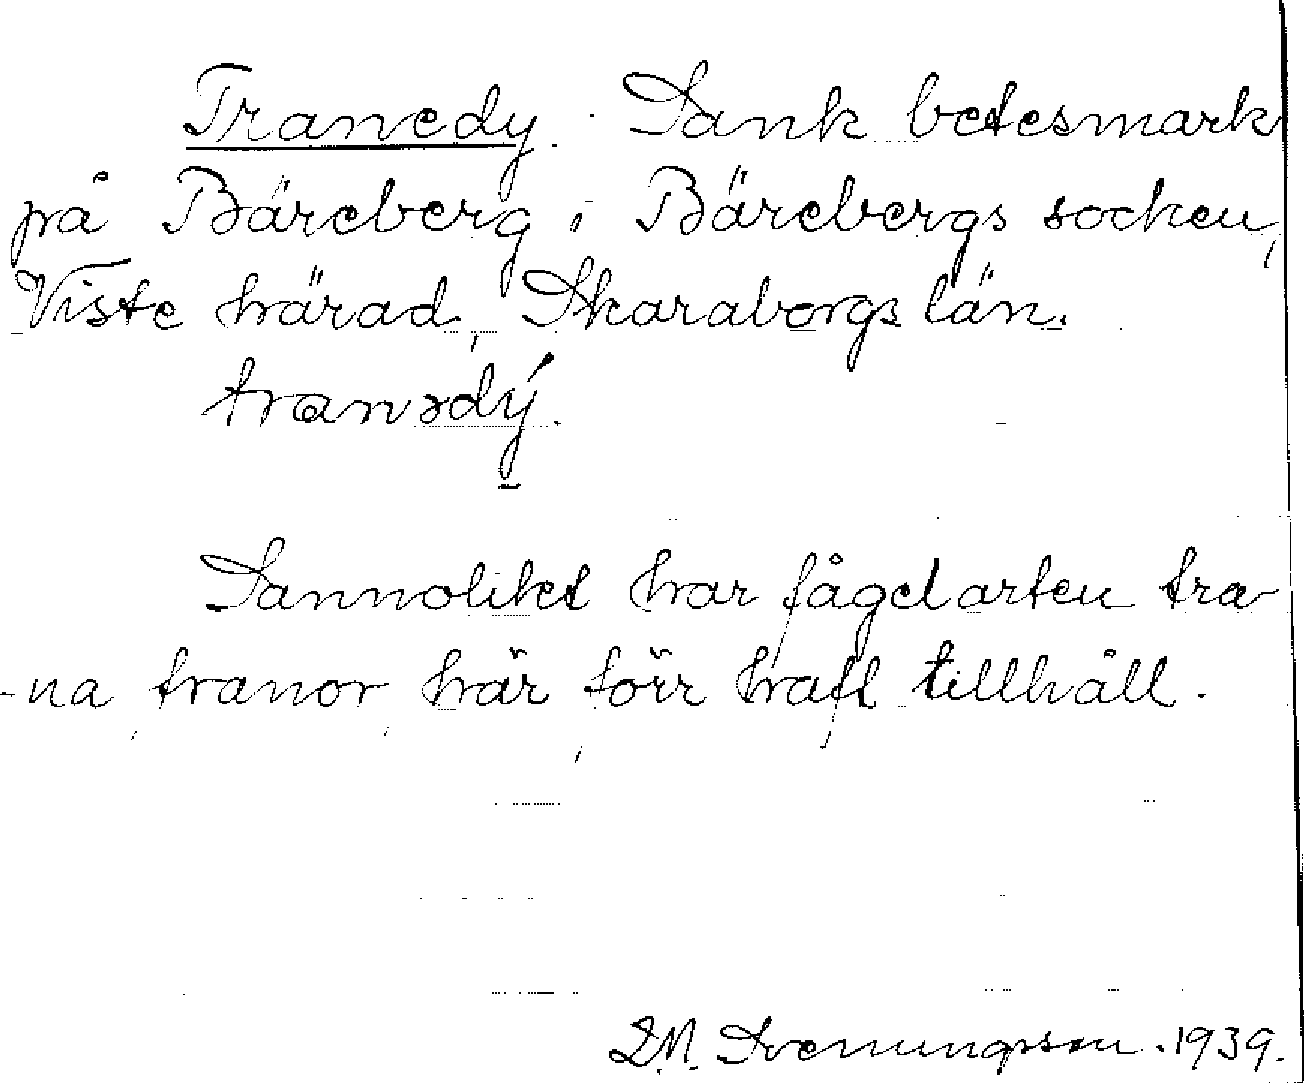 Tranedy. Sank betesmark
på Bäreberg i Bärebergs socken,
Viste härad, Skaraborgs län.
tranədý.
Sannolikt har fågelarten tra-
-na tranor här förr haft tillhåll.
Svenungsson. 1939.